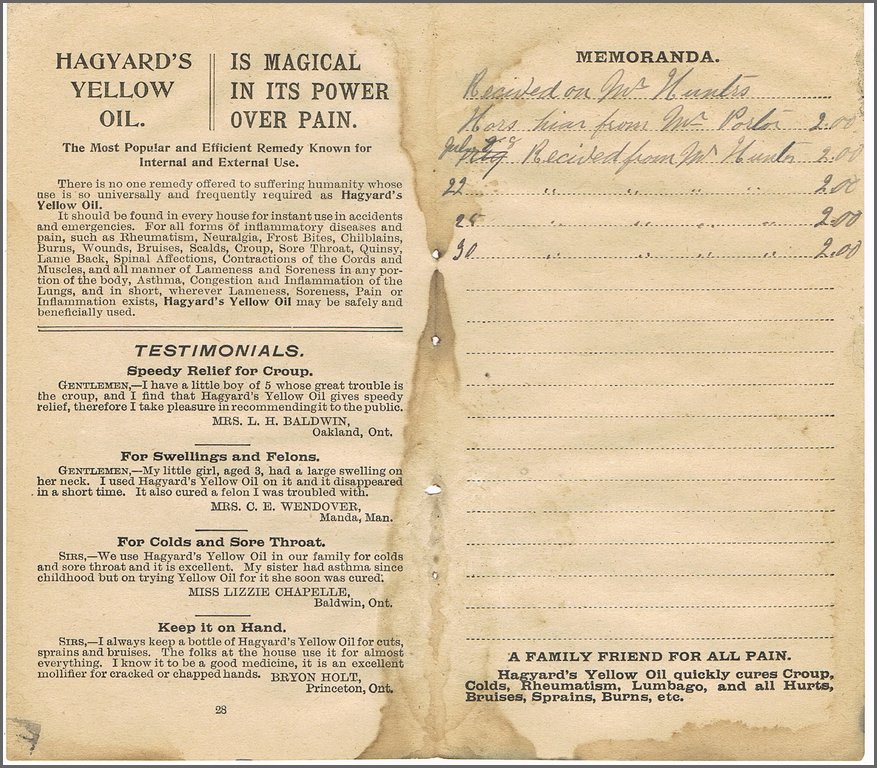 HAGYARD'S
YELLOW
OIL.
IS MAGICAL
IN ITS POWER
OVER PAIN.
The Most Popular and Efficient Remedy Known for
Internal and External Use.
There is no one remedy offered to suffering humanity whose
use is so universally and frequently required as Hagyard's
Yellow Oil.
It should be found in every house for instant use in accidents
and emergencies. For all forms of inflammatory diseases and
pain, such as Rheumatism, Neuralgia, Frost Bites, Chilblains,
Burns, Wounds, Bruises, Scalds, Croup, Sore Throat, Quinsy,
Lame Back, Spinal Affections, Contractions of the Cords and
Muscles, and all manner of Lameness and Soreness in any por-
tion of the body, Asthma, Congestion and Inflammation of the
Lungs, and in short, wherever Lameness, Soreness, Pain or
Inflammation exists, Hagyard's Yellow Oil may be safely and
beneficially used.
TESTIMONIALS.
Speedy Relief for Croup.
GENTLEMEN,—I have a little boy of 5 whose great trouble is
the croup, and I find that Hagyard's Yellow Oil gives speedy
relief, therefore I take pleasure in recommending it to the public.
MRS. L. H. BALDWIN,
Oakland, Ont.
For Swellings and Felons.
GENTLEMEN,—My little girl, aged 3, had a large swelling on
her neck. I used Hagyard's Yellow Oil on it and it disappeared
in a short time. It also cured a felon I was troubled with.
MRS. C. E. WENDOVER,
Manda, Man.
For Colds and Sore Throat.
SIRS,—We use Hagyard's Yellow Oil in our family for colds
and sore throat and it is excellent. My sister had asthma since
childhood but on trying Yellow Oil for it she soon was cured.
MISS LIZZIE CHAPELLE,
Baldwin, Ont.
Keep it on Hand.
SIRS,—I always keep a bottle of Hagyard's Yellow Oil for cuts,
sprains and bruises. The folks at the house use it for almost
everything. I know it to be a good medicine, it is an excellent
mollifier for cracked or chapped hands. BRYON HOLT,
Princeton, Ont.
28
MEMORANDA.
Recived on Mr Hunters
Hors hier from Mr Porter 2.00
Recived from Mr Hunter 2.00
22 " " " " 2.00
25 " " " " 2.00
30 " " " " 2.00
A FAMILY FRIEND FOR ALL PAIN.
Hagyard's Yellow Oil quickly cures Croup,
Colds, Rheumatism, Lumbago, and all Hurts,
Bruises, Sprains, Burns, etc.